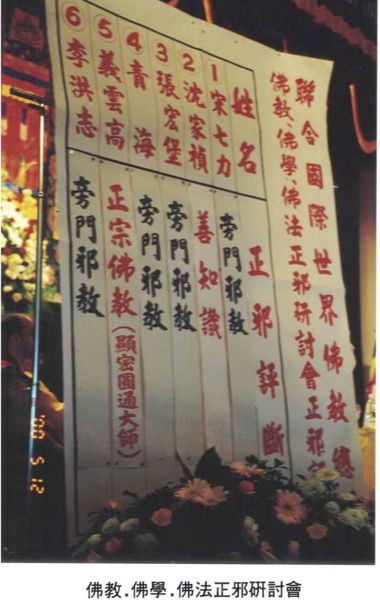 聯合國際世界佛教總
佛教、佛學、佛法正邪研討會正邪
姓名 正邪評斷
1 宋七力 旁門邪教
2 沈家禎 善知識
3 張宏堡 旁門邪教
4 青海 旁門邪教
5 義雲高 正宗佛教(顯密圓通大師)
6 李洪志 旁門邪教
'00 5 12
佛教.佛學.佛法正邪硏討會